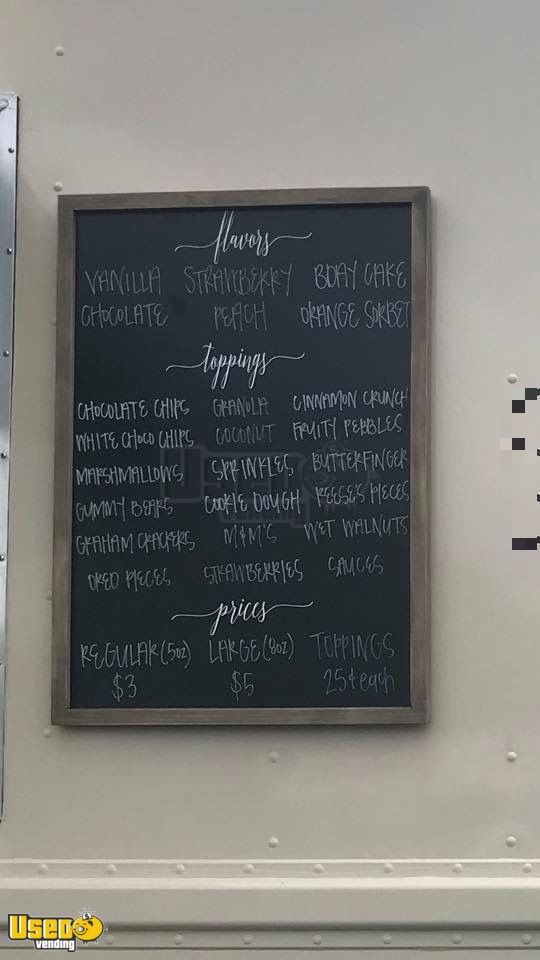 flavors
VANILLA STRAWBERRY BDAY CAKE
CHOCOLATE PEACH ORANGE SORBET
toppings
CHOCOLATE CHIPS GRANOLA CINNAMON CRUNCH
WHITE CHOCO CHIPS COCONUT FRUITY PEBBLES
MARSHMALLOWS SPRINKLES BUTTERFINGER
GUMMY BEARS COOKIE DOUGH REESE'S PIECES
GRAHAM CRACKERS M&M'S WET WALNUTS
OREO PIECES STRAWBERRIES SAUCES
prices
REGULAR (5oz) LARGE (8oz) TOPPINGS
$3 $5 25¢ each
USED
vending